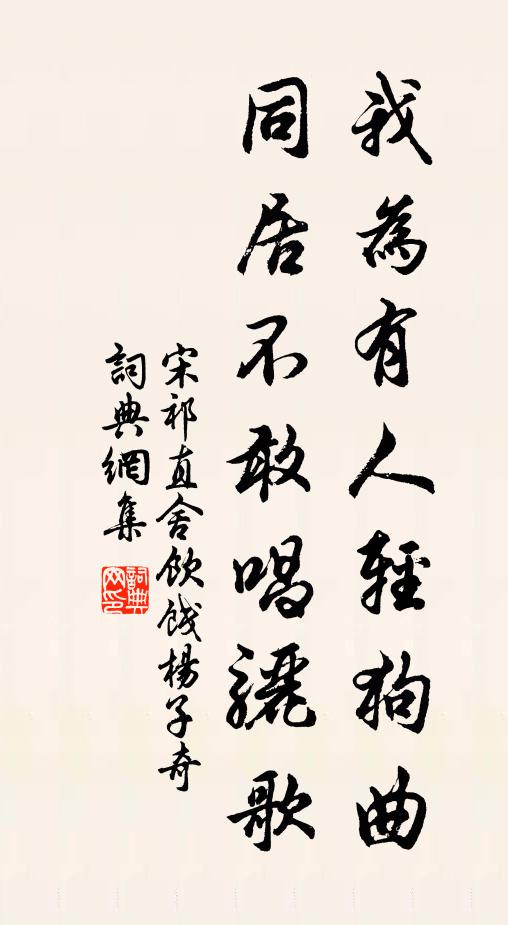 我為有人輕狗曲
同居不敢唱驪歌
宋祁直舍飲餞楊子奇
詞典網集
詞典網印